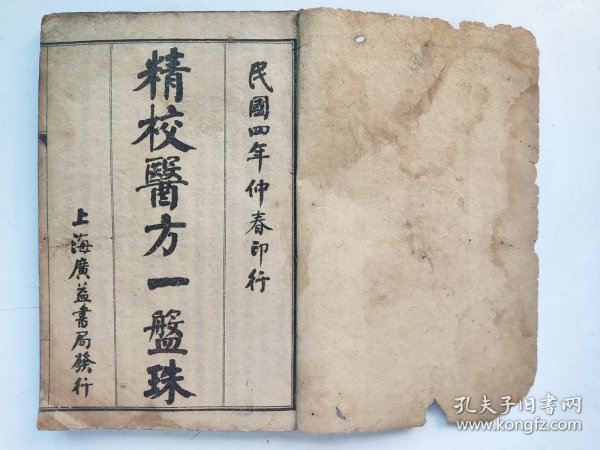 民國四年仲春印行
精校醫方一盤珠
上海廣益書局發行
孔夫子旧书网
www.kongfz.com